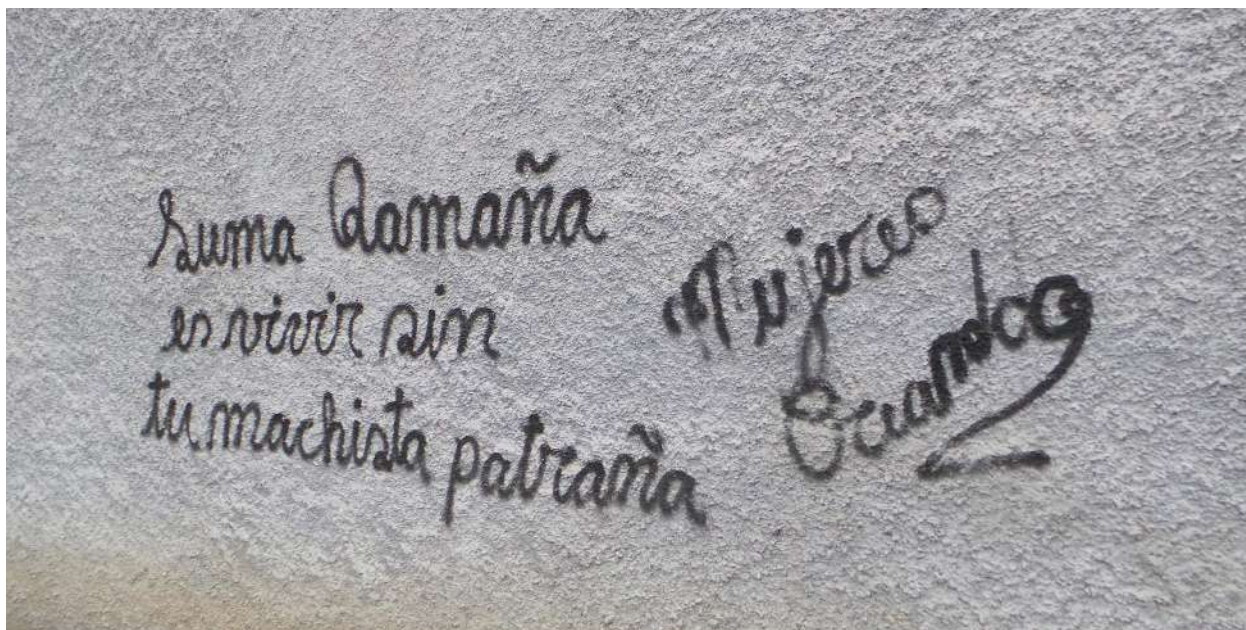 Suma Qamaña
es vivir sin
tu machista patraña
Mujeres
Creando